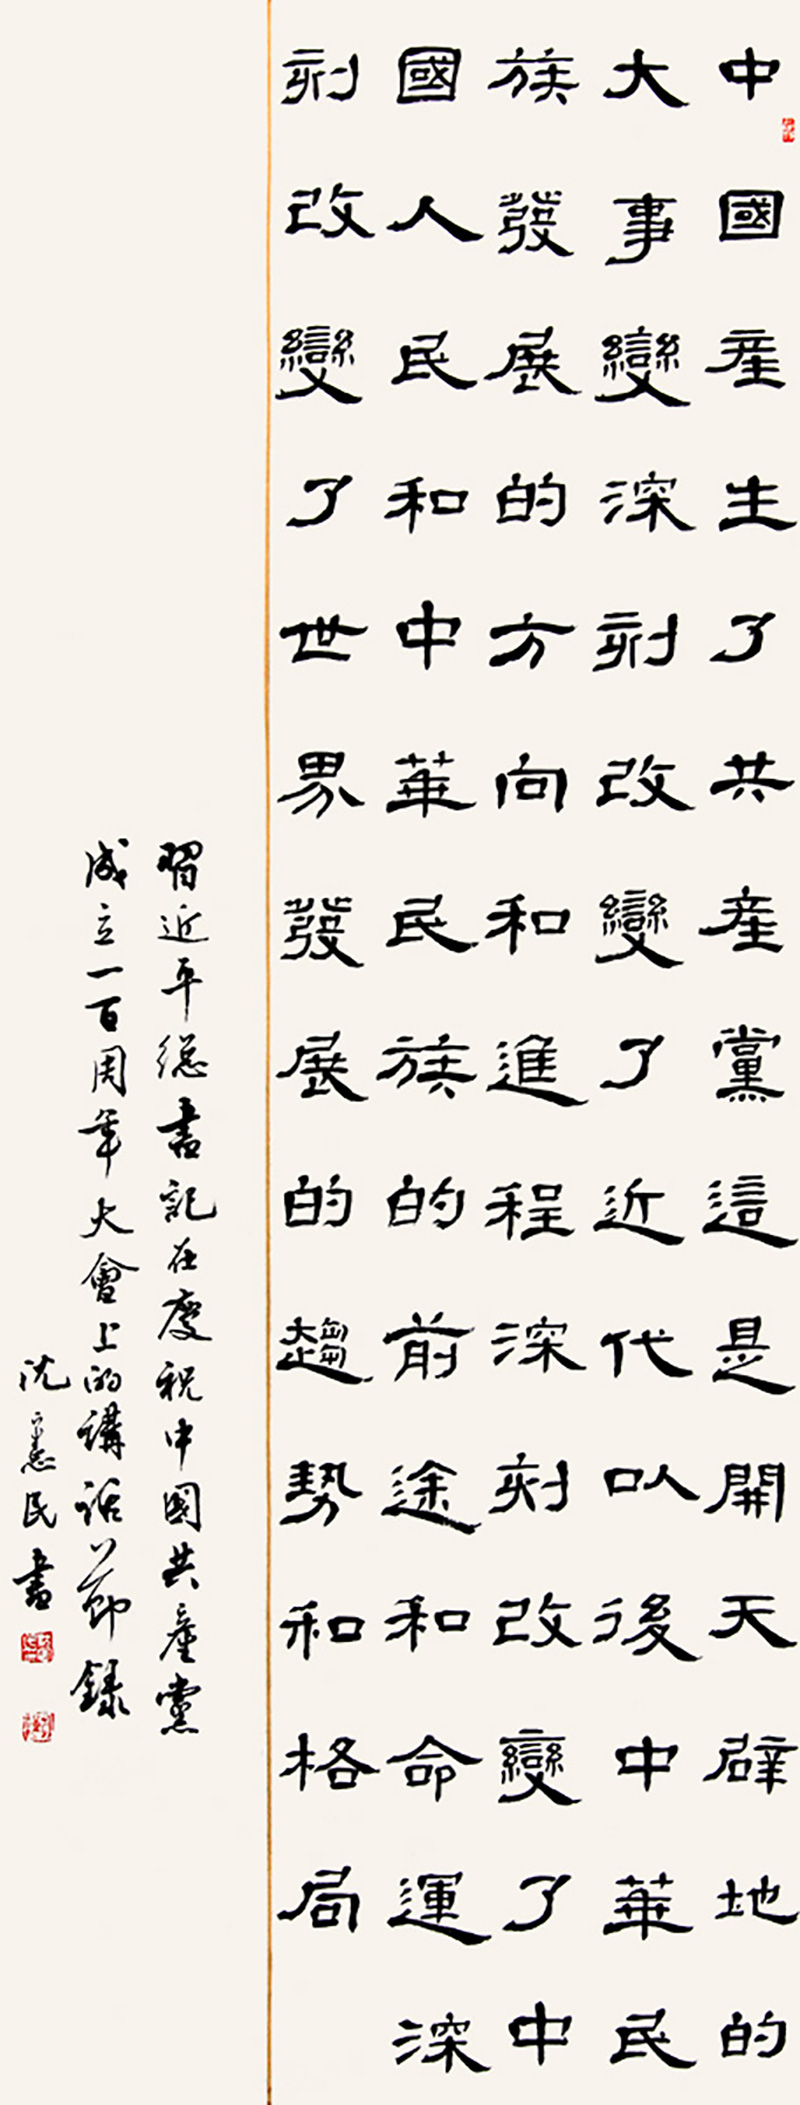 中國產生了共產黨這是開天辟地的
大事變深刻改變了近代以後中華民
族發展的方向和進程深刻改變了中
國人民和中華民族的前途和命運深
刻改變了世界發展的趨勢和格局
習近平總書記在慶祝中國共產黨
成立一百周年大會上的講話節錄
沈憲民書